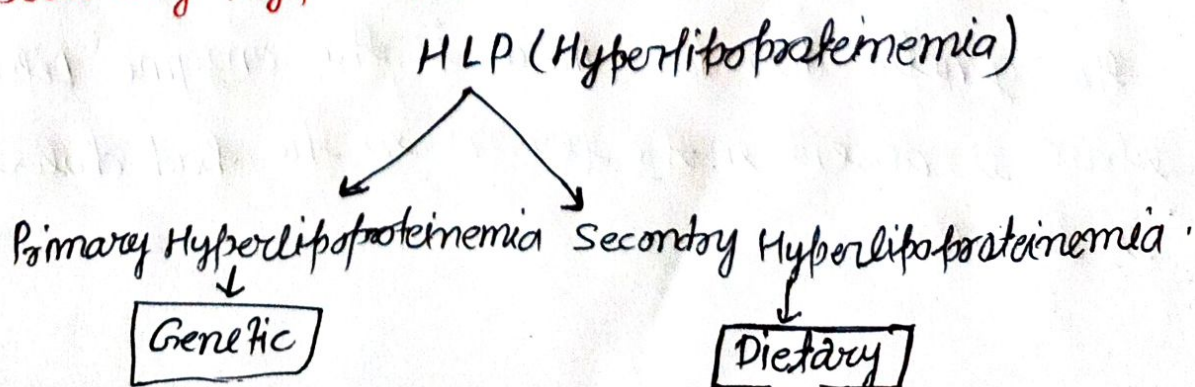 HLP (Hyperlipoproteinemia)
Primary Hyperlipoproteinemia Secondry Hyperlipoproteinemia.
Genetic Dietary